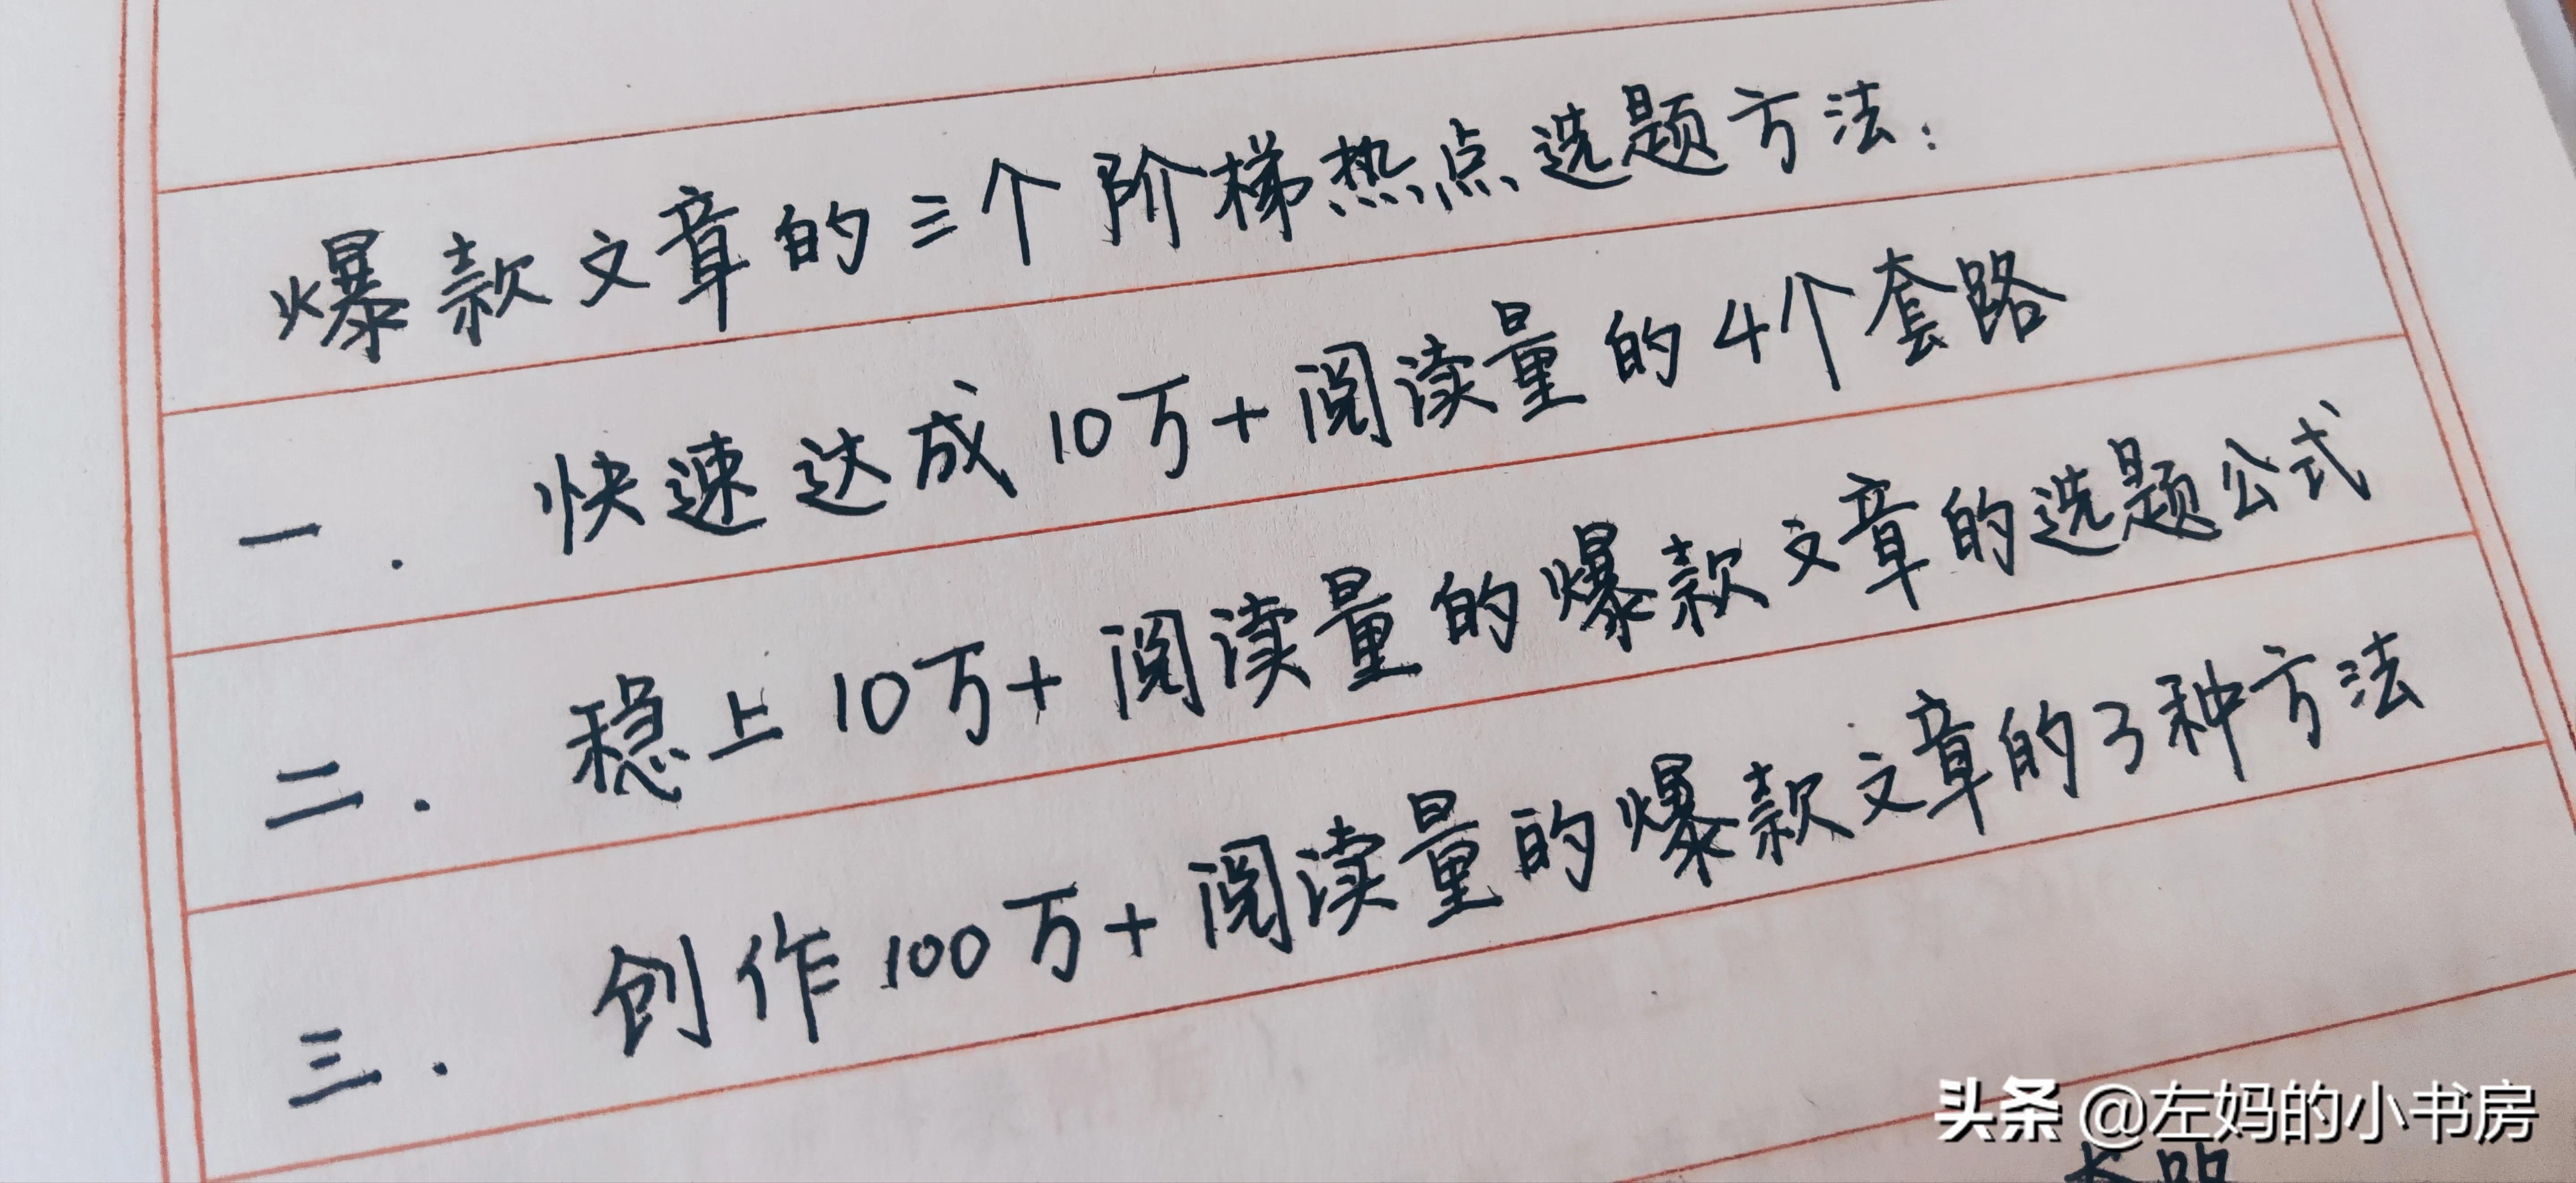 爆款文章的三个阶梯热点选题方法：
一. 快速达成10万+阅读量的4个套路
二. 稳上10万+阅读量的爆款文章的选题公式
三. 创作100万+阅读量的爆款文章的3种方法
头条 @左妈的小书房